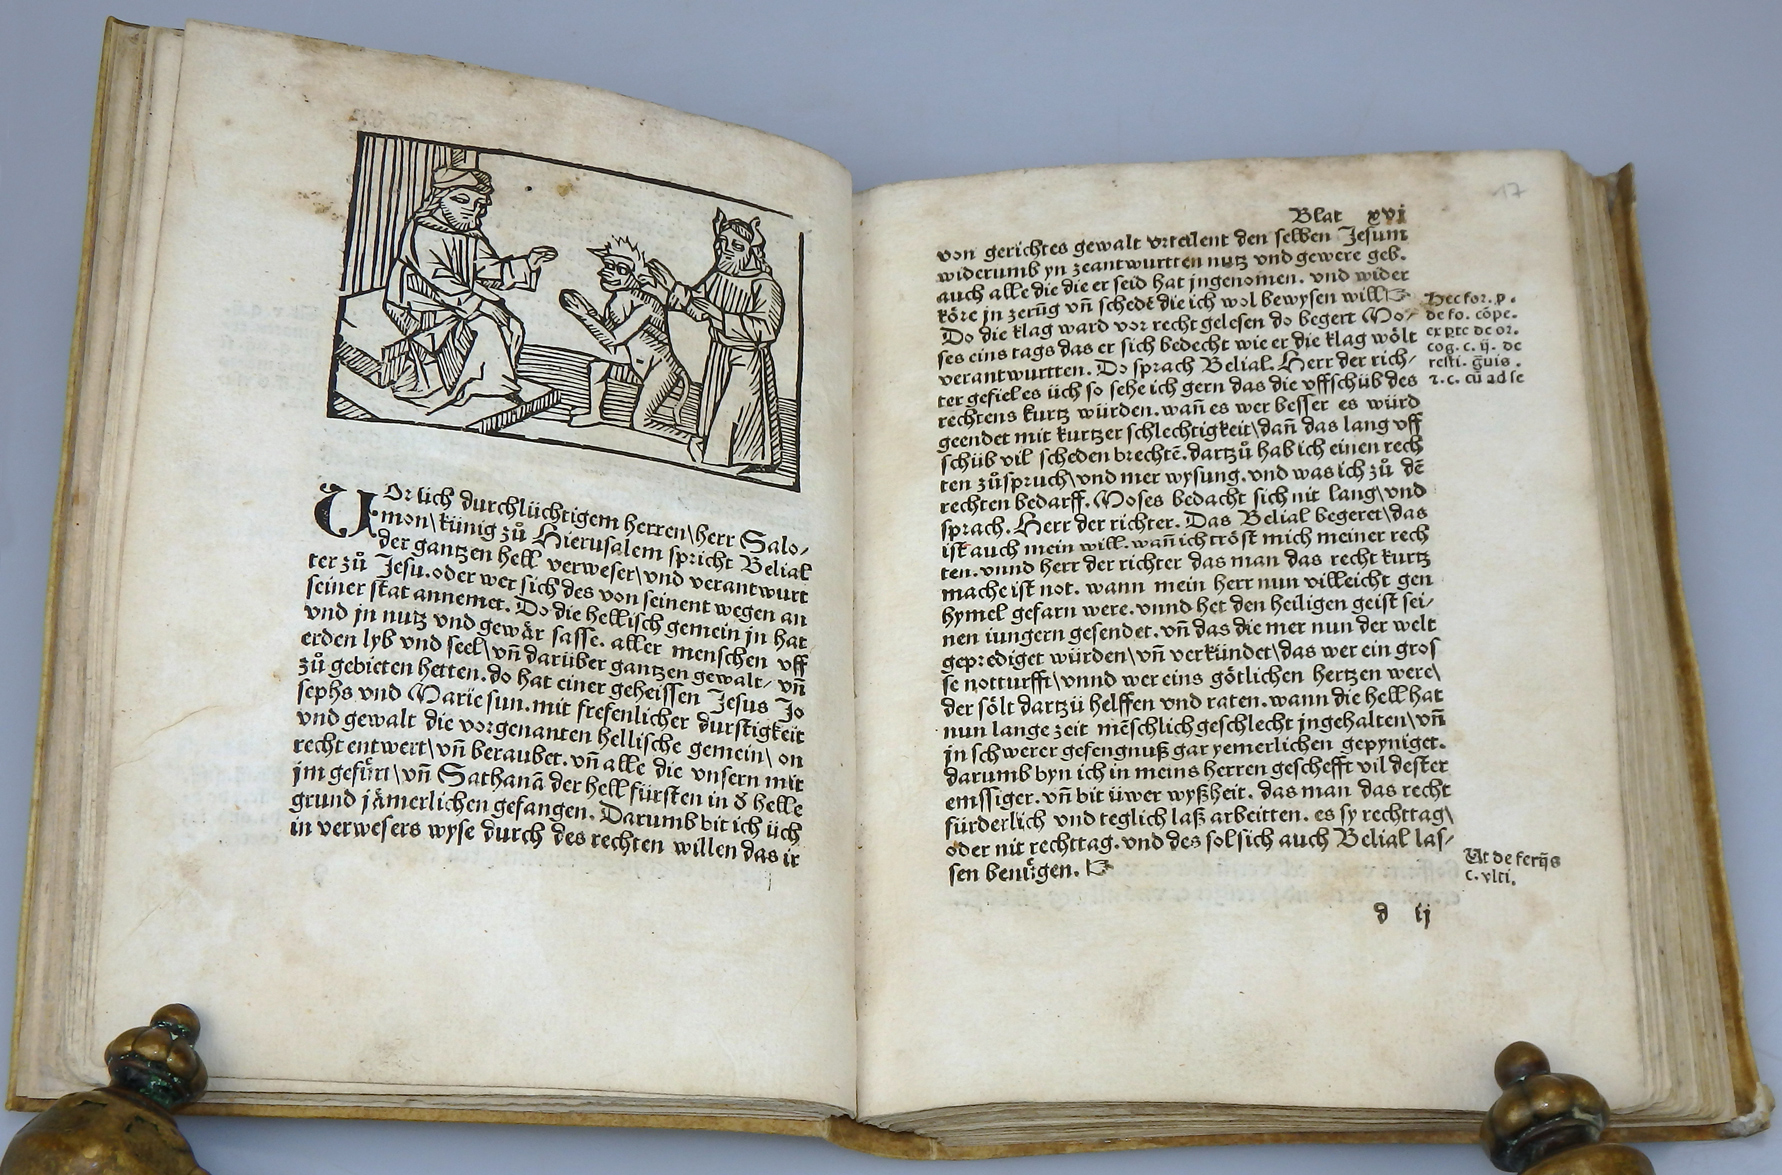 Vor üch durchlüchtigem herren\herr Salo⸗
mon\künig zů Hierusalem spricht Belial
der gantzen hell verweser\vnd verantwurt
ter zů Jesu. oder wer sich des von seinent wegen an
seiner stat annemet. Do die hellisch gemein jn hat
vnd jn nutz vnd gewär sasse. aller menschen vff
erden lyb vnd seel\vn̄ darüber gantzen gewalt/ vn̄
zů gebieten hetten. do hat einer geheissen Jesus Jo
sephs vnd Marie sun. mit frefenlicher durstigkeit
vnd gewalt die vorgenanten hellische gemein\ on
recht entwert\vn̄ beraubet. vn̄ alle die vnsern mit
jm gefürt\vn̄ Sathanā der hell fürsten in d helle
grund jämerlichen gefangen. Darumb bit ich üch
in verwesers wyse durch des rechten willen das ir
17
Blat xvj
von gerichtes gewalt vrteilent den selben Jesum
widerumb yn zeantwurtten nutz vnd gewere geb.
auch alle die die er seid hat jngenomen. vnd wider
köre jn zerüg vn̄ schedē die ich wol bewysen will
Do die klag ward vor recht gelesen do begert Mo⸗
ses eins tags das er sich bedecht wie er die klag wölt
verantwurtten. Do sprach Belial. Herr der rich⸗
ter gefiel es üch so sehe ich gern das die vffschüb des
rechtens kurtz würden. wan̄ es wer besser es würd
geendet mit kurtzer schlechtigkeit\dan̄ das lang vff
schüb vil scheden brechtē. dartzů hab ich einen rech
ten zůspruch\vnd mer wysung. vnd was ich zů dē
rechten bedarff. Moses bedacht sich nit lang\vnd
sprach. Herr der richter. Das Belial begeret\das
ist auch mein will. wan̄ ich tröst mich meiner rech
ten. vnnd herr der richter das man das recht kurtz
mache ist not. wann mein herr nun villeicht gen
hymel gefarn were. vnnd het den heiligen geist sei⸗
nen iungern gesendet. vn̄ das die mer nun der welt
geprediget würden\vn̄ verkündet\das wer ein gros
se notturfft\vnnd wer eins götlichen hertzen were\
der sölt dartzü helffen vnd raten. wann die hell hat
nun lange zeit mēschlich geschlecht jngehalten\vn̄
jn schwerer gefengnuß gar yemerlichen gepyniget.
darumb byn ich in meins herren geschefft vil dester
emssiger. vn̄ bit üwer wyßheit. das man das recht
fürderlich vnd teglich laß arbeitten. es sy rechttag\
oder nit rechttag. vnd des sol sich auch Belial las⸗
sen benügen.
Hec for. p.
de fo. cōpe.
ex pte de or.
cog. c. ij. de
resti. q̄uis.
z. c. cū ad se
Ut de ferijs
c. vlti.
d ij